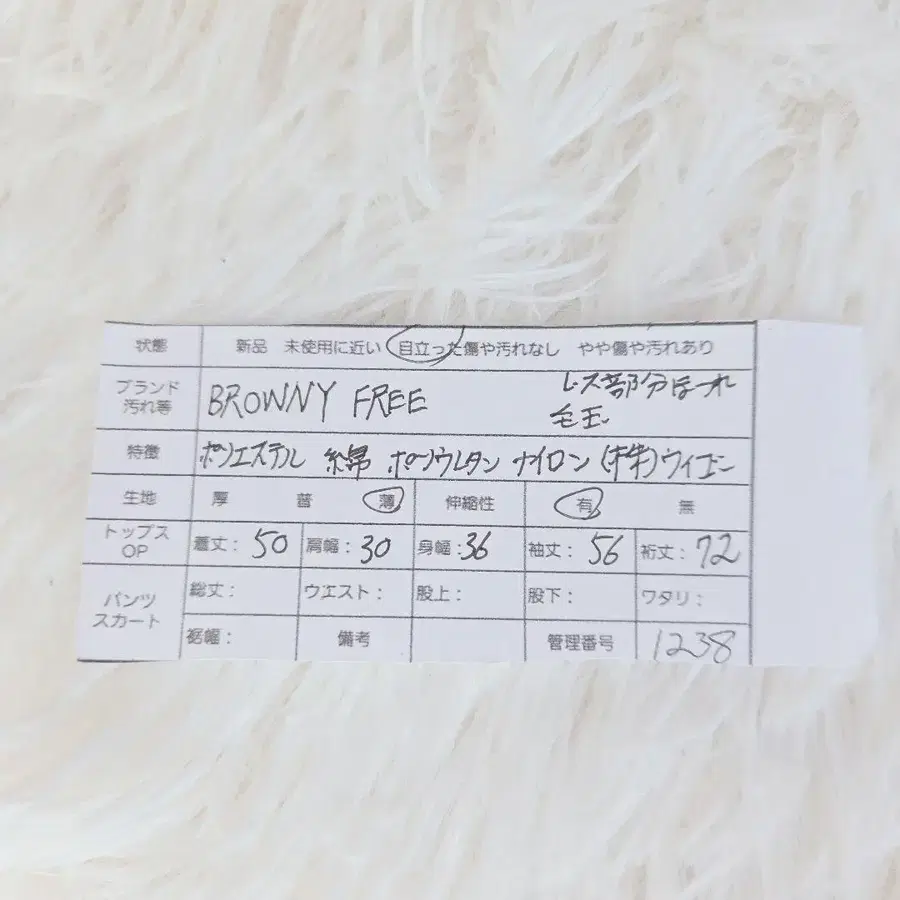 状態 新品 未使用に近い 目立った傷や汚れなし やや傷や汚れあり
ブランド 汚れ等 BROWNY FREE レース部分ほつれ 毛玉
特徴 ポリエステル 綿 ポリウレタン ナイロン (株)ウィゴー
生地 厚 普 薄 伸縮性 有 無
トップス OP 着丈: 50 肩幅: 30 身幅: 36 袖丈: 56 裄丈: 72
パンツ スカート 総丈: ウエスト: 股上: 股下: ワタリ:
裾幅: 備考 管理番号 1238